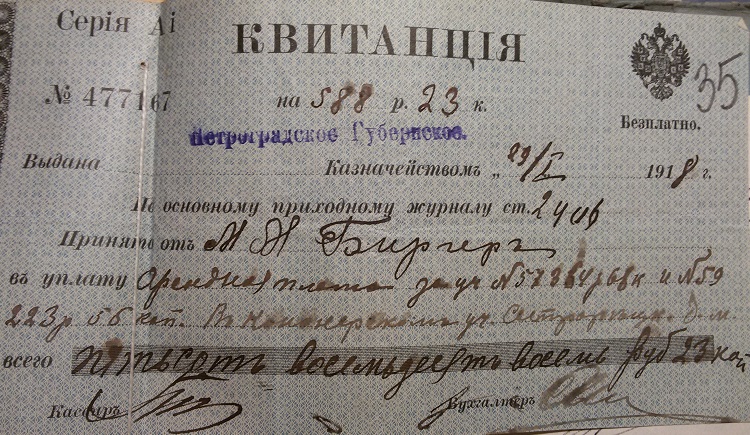 Серія Аі
КВИТАНЦІЯ
35
№ 477167
на 588 р. 23 к.
Безплатно.
Петроградское Губернское.
Выдана Казначействомъ „29/I 1918 г.
По основному приходному журналу ст. 2406
Принято отъ М М Биргеръ
въ уплату Арендная плата за уч N 57 364 р 68 к и N 59
223 р 56 коп. В Канонерскомъ уч. Сестрорецк.
всего пятьсотъ восемьдесятъ восемь руб 23 коп
Кассиръ Бухгалтеръ